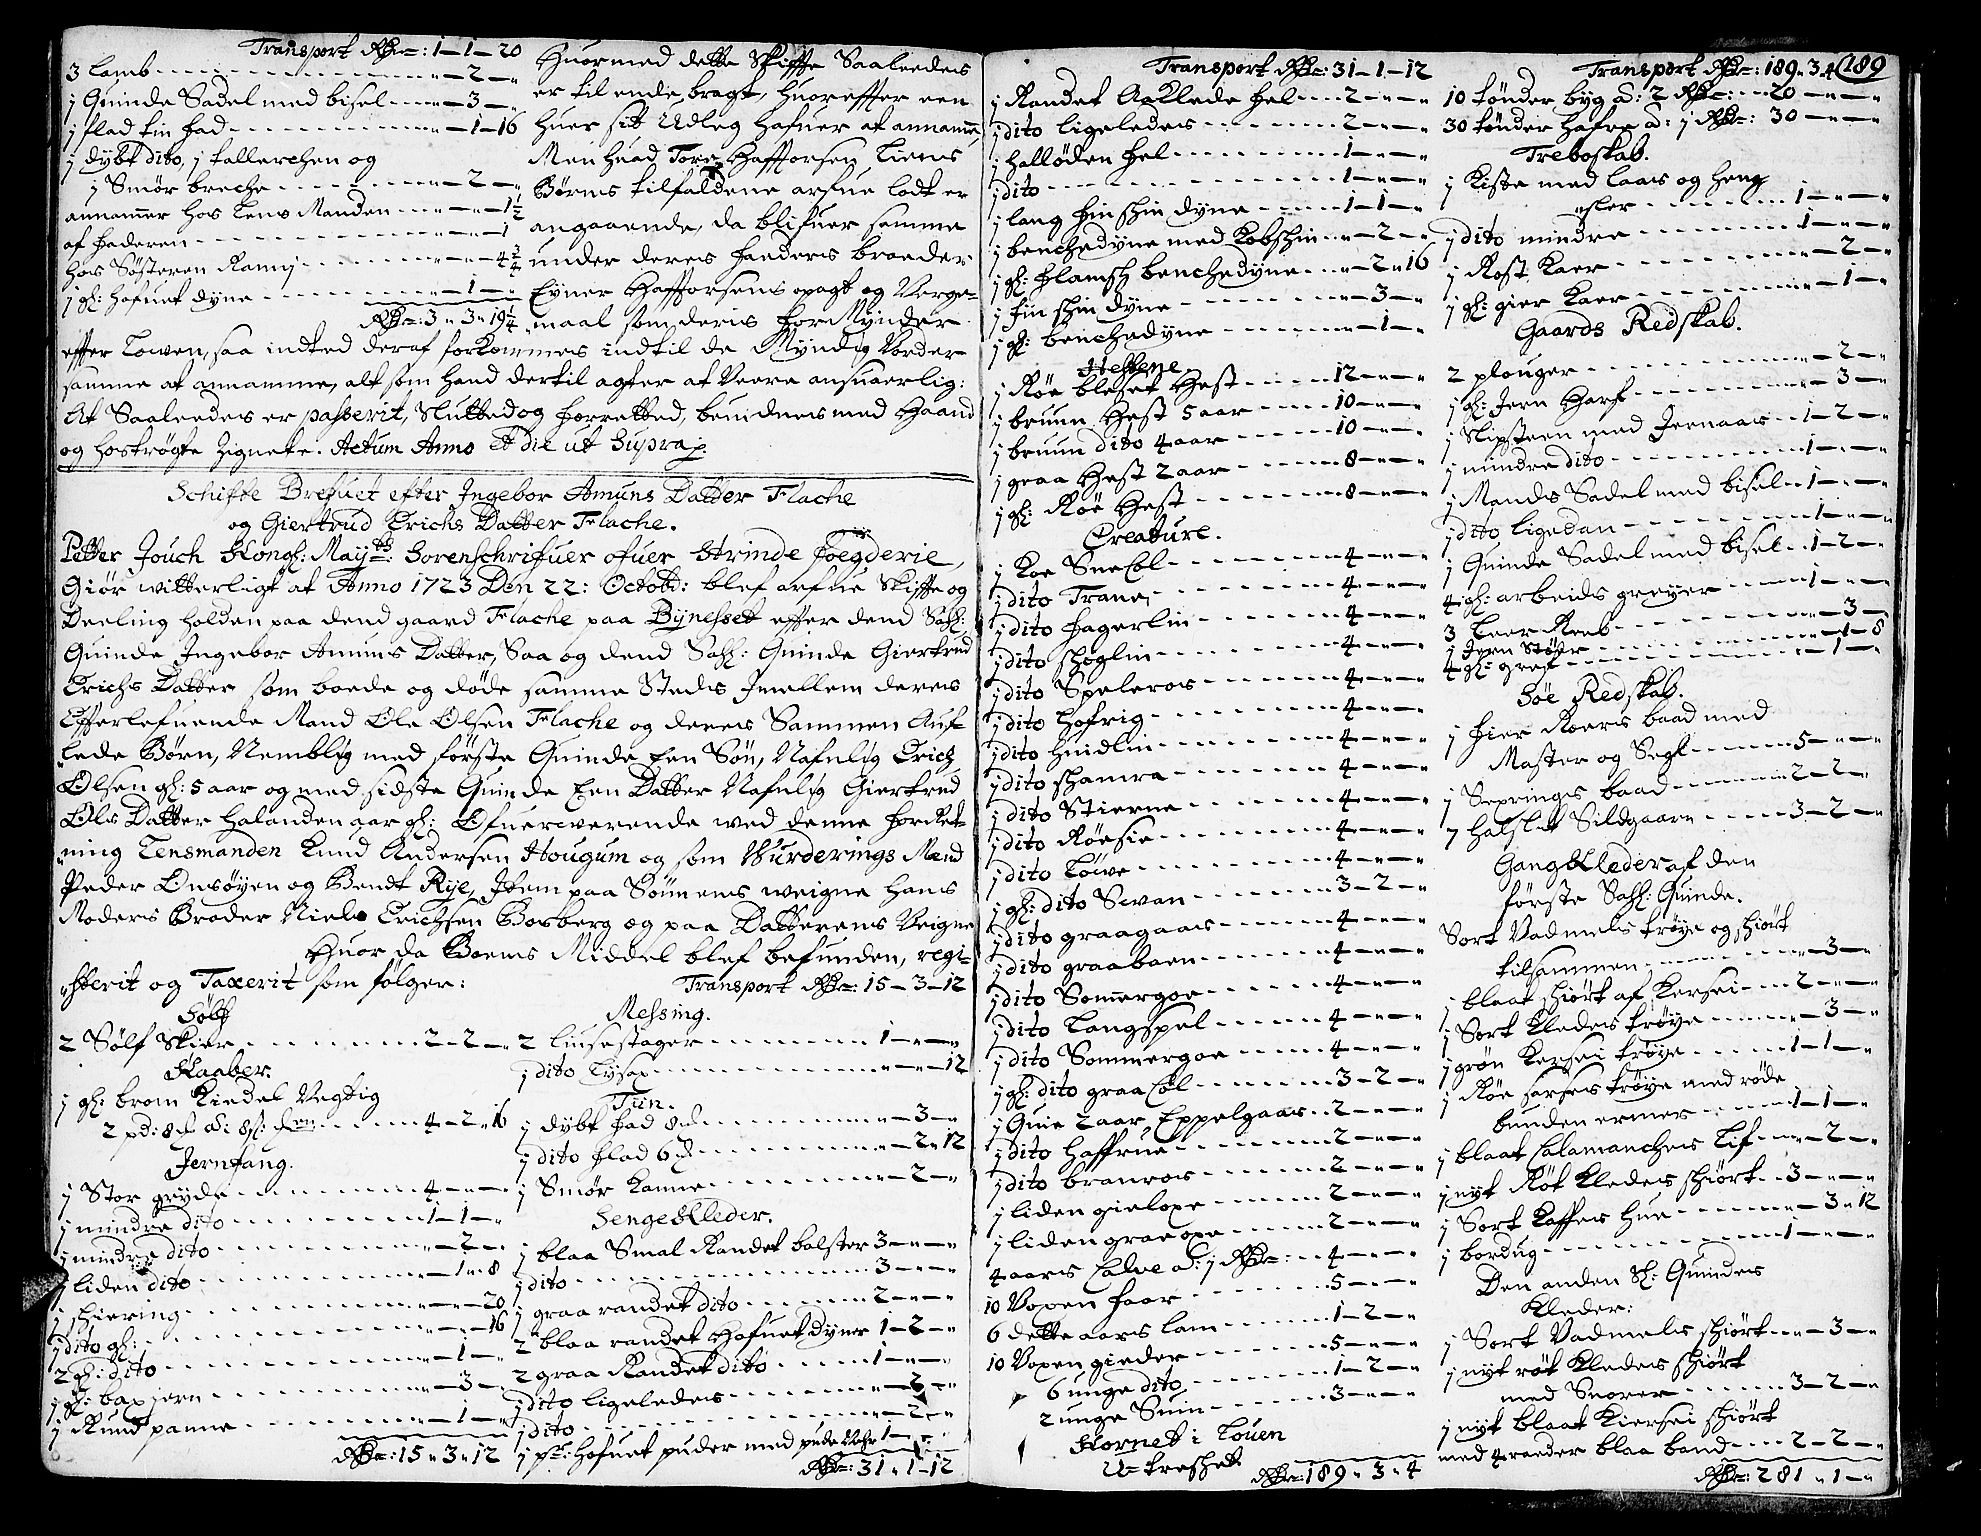 Transport Rdr: 1-1-20
3 Lamb - - - „-2-„
1 Quinde Sadel med bisel - - „-3-„
1 flad tin fad - - - „-1-16
1 dybt dito, 1 tallerchen og
1 Smör breche - - - „-2-„
annammer hos Lens Manden - - „-„-1½
af faderen - - - „-„-1
hos Sösteren Ranni - - - „-„-4¾
1 gl: hofuet dyne - - - „-1-„
Rdr: 3 „ 3 „ 19¼
Huormed dette Skiffte Saaledes
er til ende bragt, huorefter een
huer sit Udleg hafuer at annamme,
Men huad Tore Hafftorsen Liens
Börns tilfaldene arfue lodt er
angaaende, da blifuer samme
under deres faders broder
Eyner Hafftorsens opagt og Verge-
maal som deris forMynder
effter Lowen, saa indted deraf forkommes indtil de Myndig Vorder
samme at annamme, alt som hand dertil agter at Veere ansuaerlig:
At Saaleedes er passerit, Slutted og forretted, beuidnes med Haand
og hoströgte Zignete. Actum Anno et die ut Supra
Schifte Brefuet efter Ingebor Amuns Datter Flache
og Giertrud Erichs Datter Flache.
Petter Jouch Kongl: Mayts: Sorenschrifuer ofuer Strinde foegderie,
Giör witterligt at Anno 1723 Den 22: Octobr: blef arfue Skiffte og
Deeling holden paa dend gaard Flache paa Bynesset effter dend Sahl:
Quinde Ingebor Amuns Datter, Saa og dend Sahl: Quinde Giertrud
Erichs Datter som boede og döde samme Steds Imellem deres
Effterlefuende Mand Ole Olsen Flache og deres Sammen Auf-
lede Börn, Nemblig med förste Quinde Een Sön, Nafnlig Erich
Olsen gl: 5 aar og med sidste Quinde Een Datter Nafnlig Giertrud
Ols Datter halanden aar gl: Ofuerwerende wed denne forRet-
ning Lensmanden Knud Andersen Hougum og som Wurderings Mænd
Peder Onsöyen og Bendt Rye, Item paa Sönnens weigne hans
Moders Broder Niels Erichsen Borberg og paa Datterens Veigne
Huor da Boens Middel blef befunden, regi-
sterit og Taxerit som fölger:
Sölf
2 Sölf Skier - - - 2-2-„
Kaaber.
1 gl: brom Kiedel Vegtig
2 pd: 8 à: 8 - - - 4-2-16
Jernfang.
1 Stor gryde - - - 4-„-„
1 mindre dito - - - 1-1-„
1 mindre dito - - - „-2-„
1 liden dito - - - „-1-8
1 schiering - - - „-„-20
1 dito gl: - - - „-„-16
2 gl: dito - - - „-1-„
1 gl: baxjern - - - „-3-„
1 Rund panne - - - „-1-„
Rdr: 15 „ 3 „ 12
Transport Rdr: 15-3-12
Messing.
2 liusestager - - - 1-„-„
1 dito Lysax - - - „-„-12
Tin.
1 dybt fad 8 - - - „-3-„
1 dito flad 6 - - - „-2-12
1 Smör Kanne - - - „-2-„
Senge Kleder.
1 blaa Smal Randet bolster 3-„-„
1 dito - - - 3-„-„
1 graa randet dito - - - 2-„-„
2 blaa randet Hofuetdyner 1-2-„
2 graa Randet dito - - - 1-„-„
1 dito ligeledes - - - „-2-„
1 dito - - - „-2-„
1 pr: hofuet puder med pude Vohr 1-„-„
Rdr: 31-1-12
Transport Rdr: 31-1-12
1 Randet Aaklede hel - - 2-„-„
1 dito ligeledes - - - 2-„-„
1 halslöden hel - - - 1-„-„
1 dito - - - 1-„-„
1 lang finschin dyne - - - 1-1-„
1 benchedyne med Kobschin - - „-2-„
1 gl: flamsch benchedyne - - „-2-16
1 finschin dyne - - - „-3-„
1 gl: benchedyne - - - „-1-„
Hestene.
1 Röe bleset Hest - - - 12-„-„
1 bruun Hest 5 aar - - - 10-„-„
1 bruun dito 4 aar - - - 10-„-„
1 graa Hest 2 aar - - - 8-„-„
1 gl: Röe Hest - - - 8-„-„
Creature.
1 Koe SneCol - - - 4-„-„
1 dito Trane - - - 4-„-„
1 dito fagerlin - - - 4-„-„
1 dito schoglin - - - 4-„-„
1 dito Speleros - - - 4-„-„
1 dito hofrig - - - 4-„-„
1 dito huidlin - - - 4-„-„
1 dito schamra - - - 4-„-„
1 dito Stierne - - - 4-„-„
1 dito Röesie - - - 4-„-„
1 dito Löwe - - - 4-„-„
1 gl: dito Swan - - - 3-2-„
1 dito graagaas - - - 4-„-„
1 dito graabaen - - - 4-„-„
1 dito Sommergoe - - - 4-„-„
1 dito Langspel - - - 4-„-„
1 dito Sommergoe - - - 4-„-„
1 gl: dito graaCol - - - 3-2-„
1 Quie 2 aar, Eppelgaas - - 2-„-„
1 dito haffrue - - - 2-„-„
1 dito branros - - - 2-„-„
1 liden gieloxe - - - 2-„-„
1 liden graeoxe - - - 2-„-„
4 aars Calve à: 1 Rdr: - - 4-„-„
10 Voxen faar - - - 5-„-„
6 dette aars lam - - - 1-2-„
10 Voxen gieder - - - 5-„-„
6 unge dito - - - 1-2-„
2 unge Suin - - - 3-„-„
Kornet i Louen
U-treschet.
Rdr: 189 „ 3 „ 4
189
Transport Rdr: 189„3„4
10 tönder byg à: 2 Rdr: - - 20-„-„
30 tönder hafre à: 1 Rdr: 30-„-„
Treboskab.
1 Kiste med laas og heng
sler - - - 1-„-„
1 dito mindre - - - 1-„-„
1 Rost Kaer - - - „-2-„
1 gl: gier Kaer - - - „-1-„
Gaards Redskab.
2 plouger - - - „-2-„
1 gl: Jern Harf - - - „-3-„
1 Slipsteen med Jernaas - - 1-2-„
1 mindre dito - - - 1-„-„
1 Mands Sadel med bisel - - 1-„-„
1 dito ligedan - - - 1-„-„
1 Quinde Sadel med bisel - - 1-2-„
4 gl: arbeids greyer - - - 1-„-„
3 Leer Reeb - - - „-3-„
1 Jern Stör - - - „-1-8
4 gl: gref - - - „-1-„
Söe Redskab.
1 fier Roers baad med
Master og Segl - - - 5-„-„
1 Seprings baad - - - 2-2-„
7 halslit Sildgaarn - - - 3-2-„
Gang Kleder af den
förste Sahl: Quinde.
Sort Vadmels tröye og schiört
tilsammen - - - „-3-„
1 blaat schiört af Kersei - - 2-„-„
1 Sort Kledes tröye - - - „-3-„
1 grön Kersei tröye - - - 1-1-„
1 Röe sarses tröye med röde
bunden ermer - - - 1-1-„
1 blaat Calamanches Lif - - „-2-„
1 nyt Röt Kledes schiört - - 3-„-„
1 Sort Kaffes hue - - - „-3-12
1 bordug - - - 1-„-„
Den anden Sl: Quindes
Kleder:
1 Sort Vadmels schiört - - „-3-„
1 nyt röt Kledes schiört
med Snorer - - - 3-2-„
1 nyt blaat Kiersei schiört
med 4 raeder blaa band - - 2-2-„
Rdr: 281 „ 1 -„